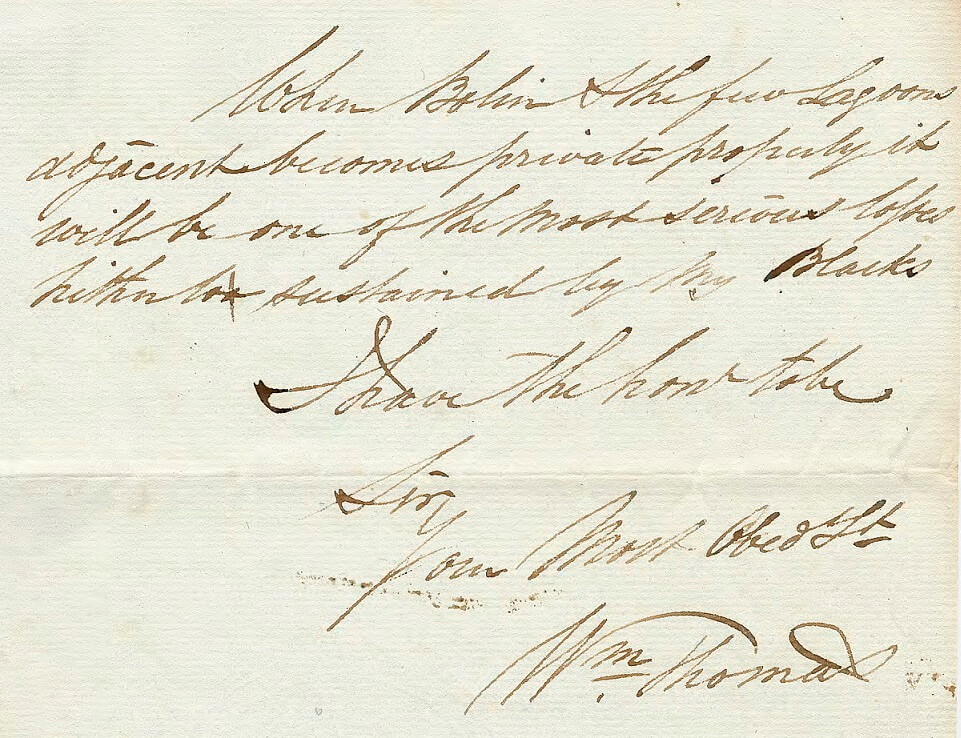 When Bolin & the few Lagoons
adjacent becomes private property it
will be one of the most serious losses
hitherto sustained by my Blacks
I have the honr to be
Sir
Your Most Obed St
Wm Thomas